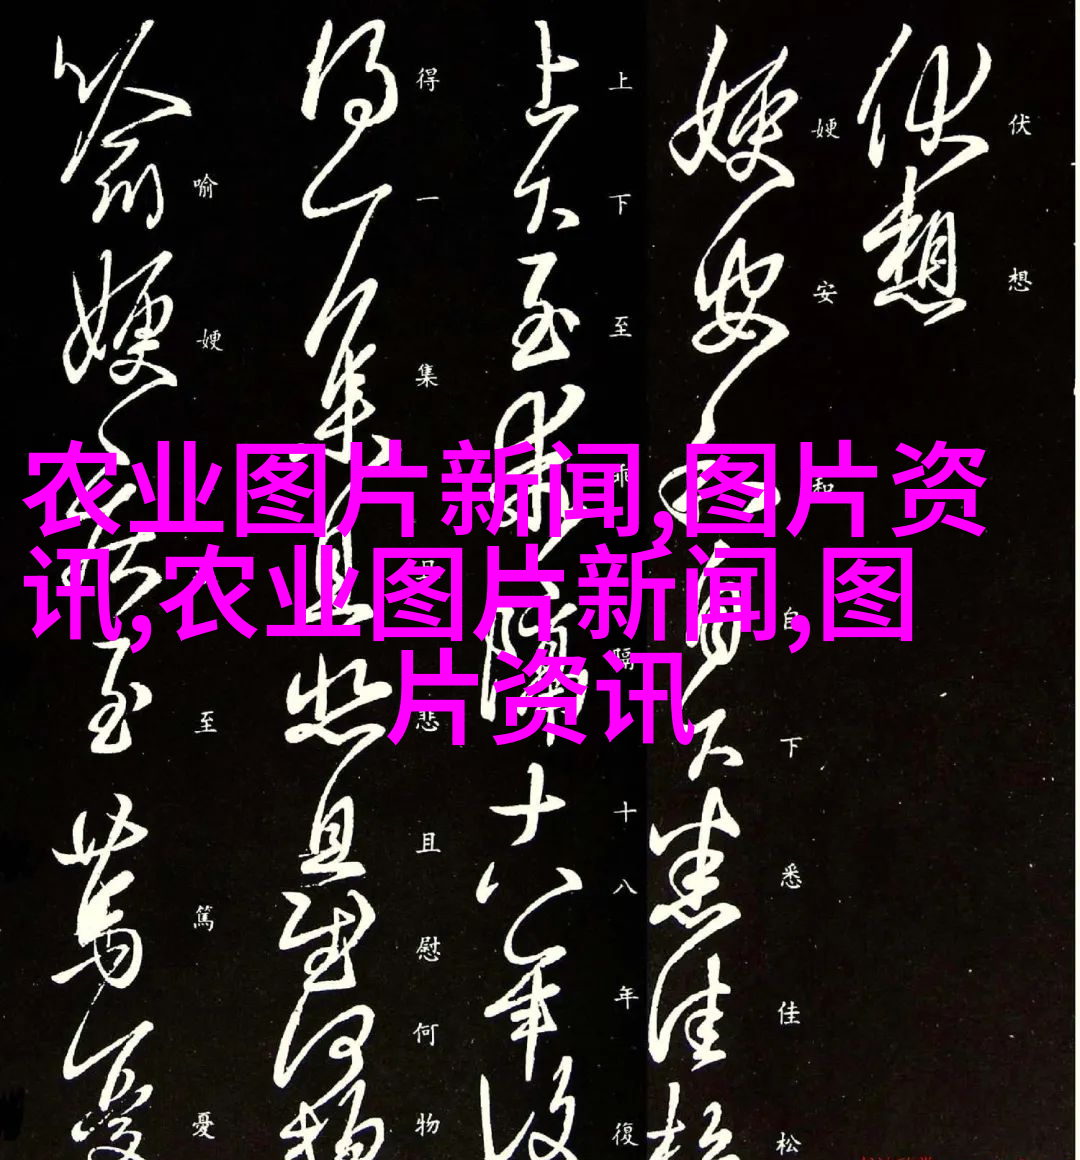 伏想
嫂安和自下悉佳松
上下至乖隔十八年復
得一集且悲且慰何物
喻嫂至篤憂
农业图片新闻,图片资
讯,农业图片新闻,图
片资讯